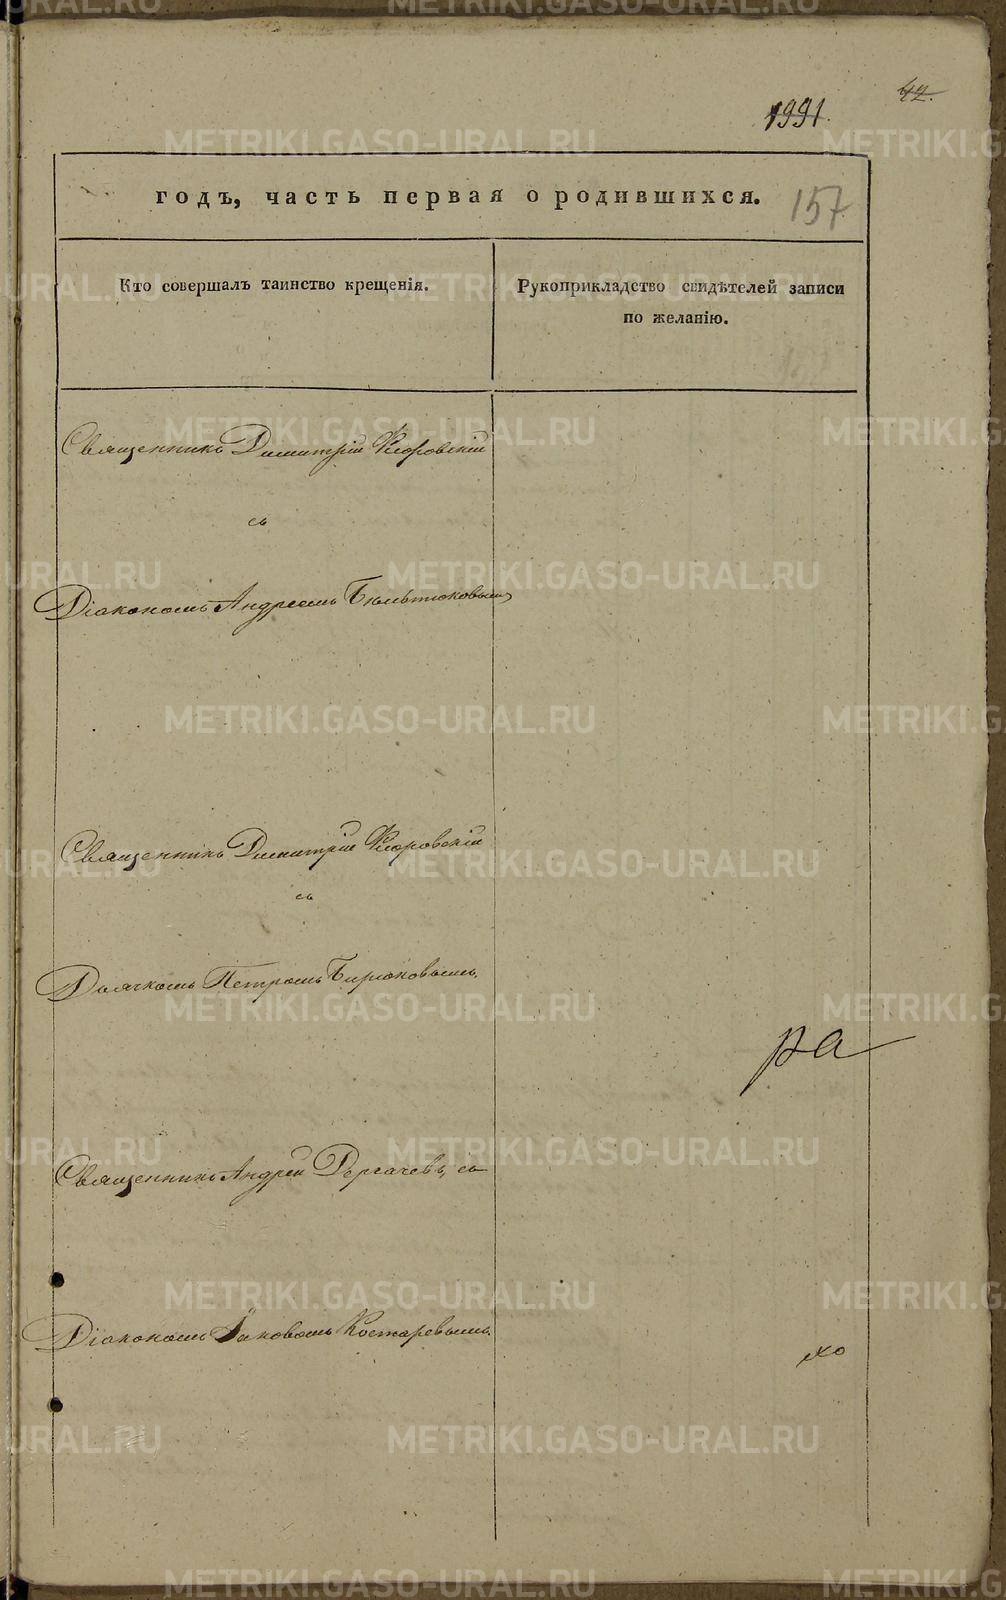 42.
1991.
годъ, часть первая о родившихся. 157
Кто совершалъ таинство крещенія.
Рукоприкладство свидѣтелей записи
по желанію.
Священникъ Димитрій Флоровскій
съ
Діакономъ Андреемъ
Священникъ Димитрій Флоровскій
съ
Дьячкомъ Петромъ Бирюковымъ.
ра
Священникъ Андрей Дергачевъ, съ
Діакономъ Іаковомъ Костаревымъ.
METRIKI.GASO-URAL.RU